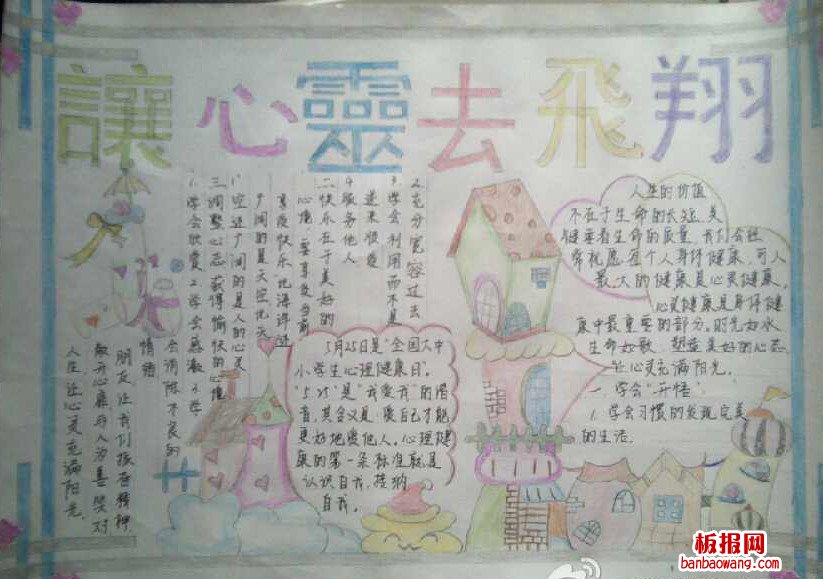 讓心靈去飛翔
人生的价值
不在于生命的长短,关
键要看生命的质量。我们会经
常祝愿每个人身体健康,可人
最大的健康是心灵健康,
心灵健康是身体健
康中最重要的部分。时光如水
生命如歌,塑造美好的心态
让心灵充满阳光。
一、学会"开悟"
1.学会习惯的发现完美
的生活。
2.充分宽容过去
3.学会利用而不是
逆来顺受
4.服务他人
二、快乐在于美好的
心境,要享受当前
快乐,比海洋还
广阔的是天空,比天
空还广阔的是人的心灵
三、调整心态,获得愉快的心境
1.学会欣赏 2.学会感激 3.学
会消除不良的
情绪
朋友让我们振奋精神
敞开心扉与人为善 笑对
人生让心灵充满阳光
5月25日是"全国大中
小学生心理健康日"。
"5·25"是"我爱我"的谐
音,其含义是爱自己才能
更好地爱他人。心理健
康的第一条标准就是
认识自我,接纳
自我。
板报网
banbaowang.com